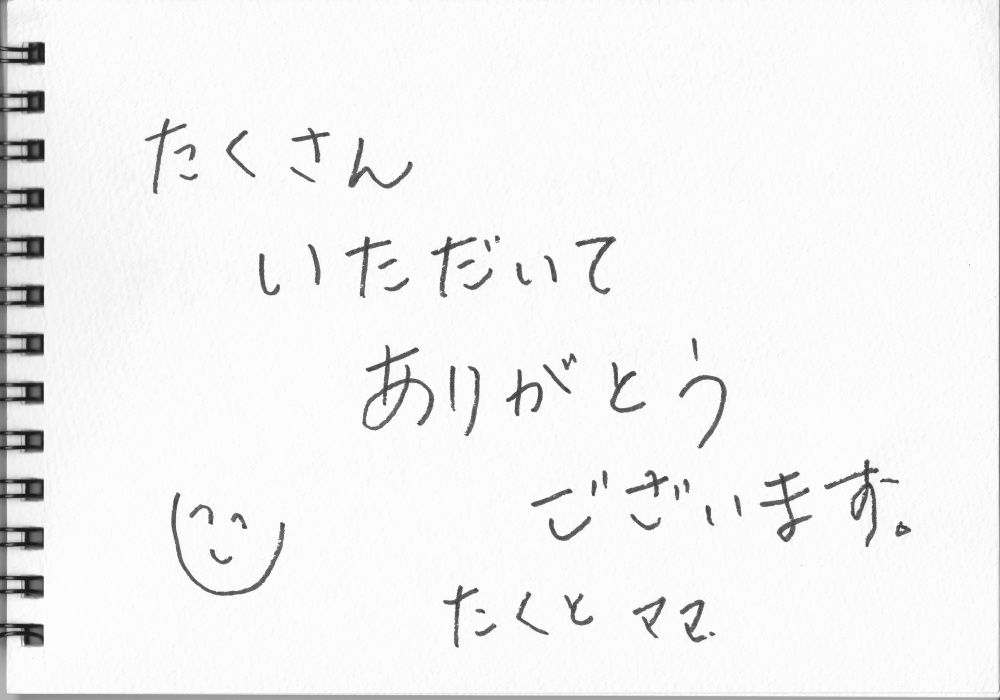 たくさん
いただいて
ありがとう
ございます。
たくと ママ